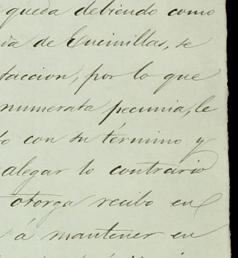 queda debiendo como
ia de Encinillas, se
faccion, por lo que
numerata pecunia, le
o con su termino y
alegar lo contrario
otorga recibo en
á mantener en